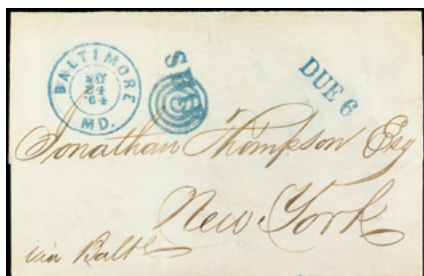 BALTIMORE
MAY
24
'64
MD.
DUE 6
Jonathan Thompson Esq
New York
via Balto